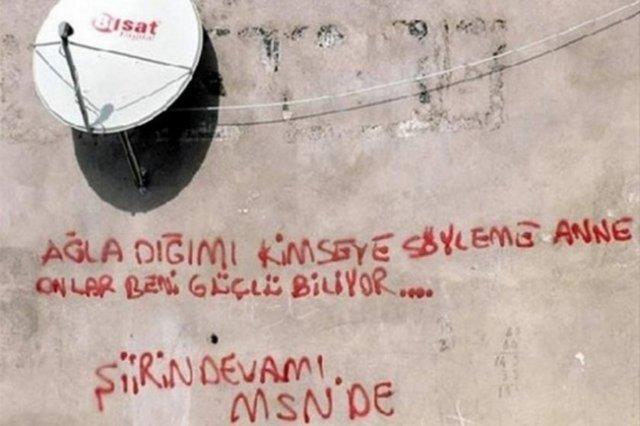 Bisat
Digital
AĞLA DIĞIMI KİMSEYE SÖYLEME ANNE
ONLAR BENİ GÜÇLÜ BİLİYOR....
ŞİİRİN DEVAMI
MSN'DE